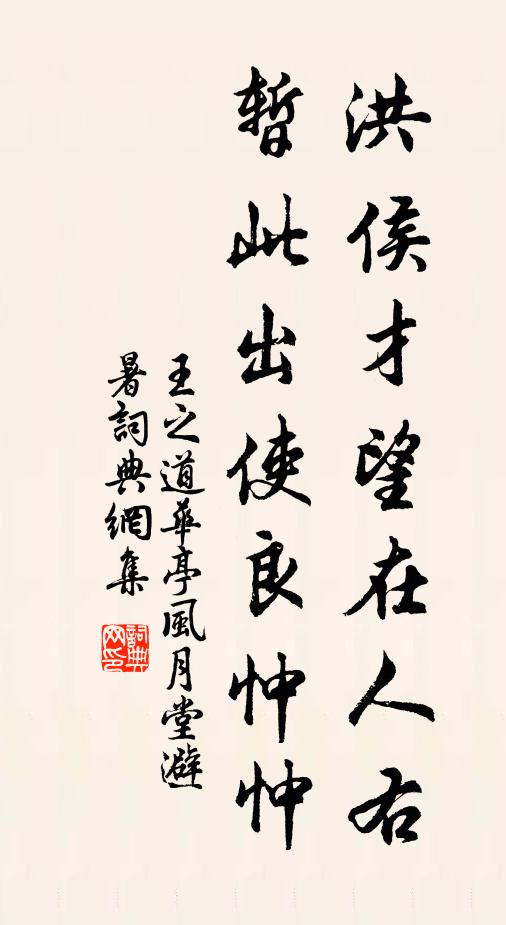 洪侯才望在人右
暫此出使良忡忡
王之道華亭風月堂避
暑詞典網集
詞典
网印